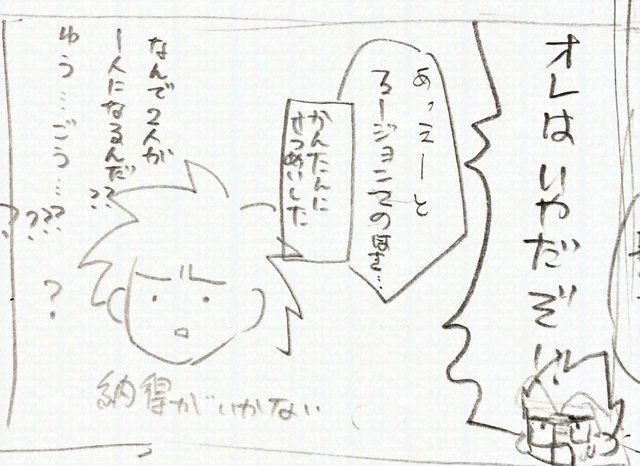 オレはいやだぞ!!
あっえーと
かんたんに
せつめいした
なんで2人が
1人になるんだ??
ゆう…ごう…???
?
納得がいかない